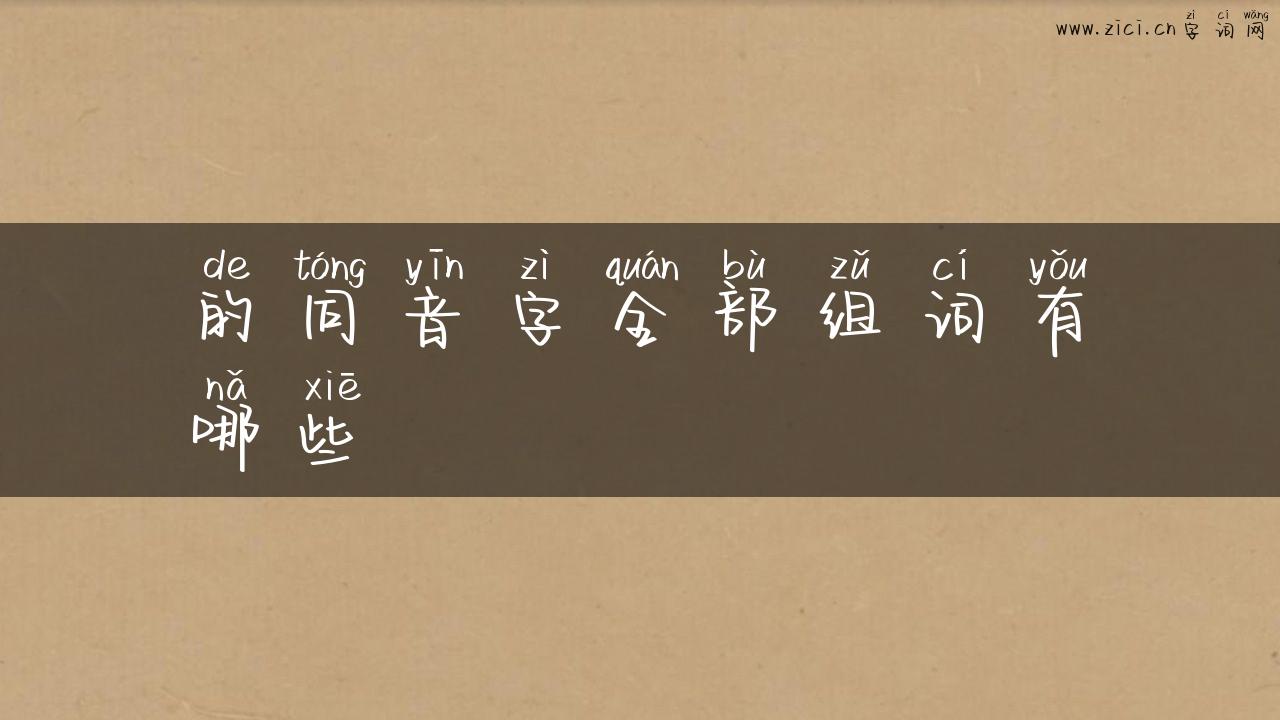 zì cí wǎng
www.zici.cn 字 词 网
de tóng yīn zì quán bù zǔ cí yǒu
的 同 音 字 全 部 组 词 有
nǎ xiē
哪 些